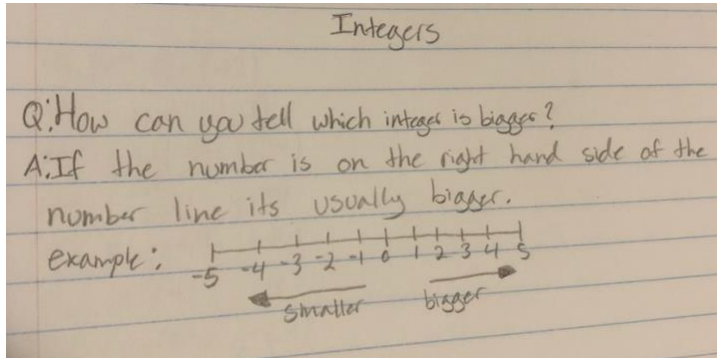 Integers
Q: How can you tell which integer is bigger?
A: If the number is on the right hand side of the
number line its usually bigger.
example:
-5 -4 -3 -2 -1 0 1 2 3 4 5
smaller bigger